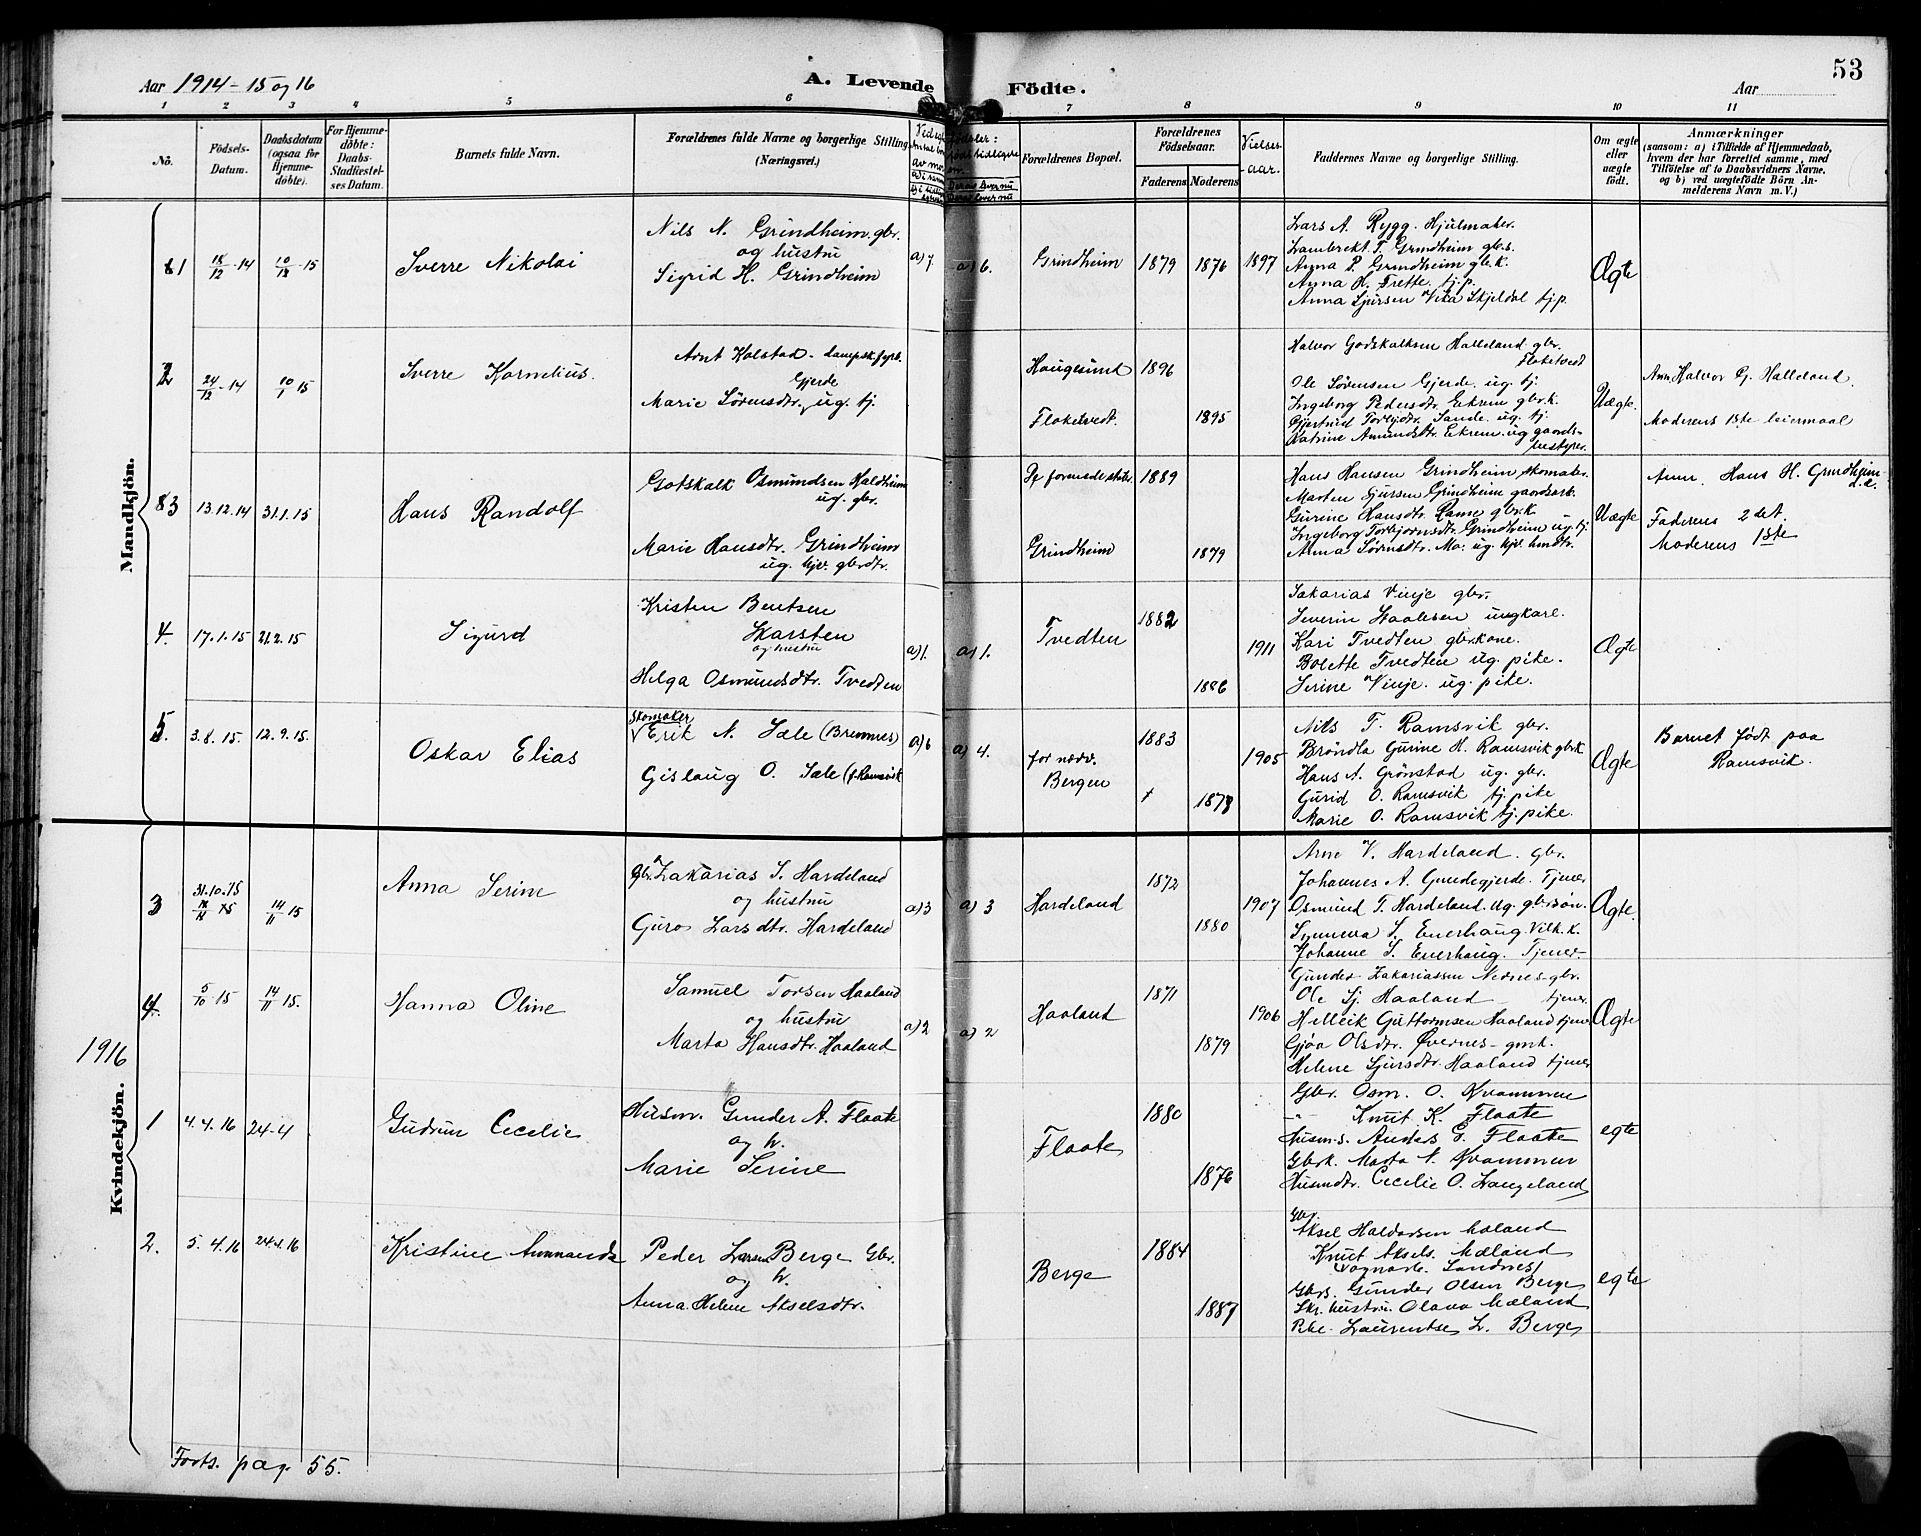 Aar 1914-15 og 16
A. Levende Födte.
Aar
53
1 2 3 4 5 6 7 8 9 10 11
No.
Fødsels-
Datum.
Daabsdatum
(ogsaa for
Hjemme-
døbte).
For Hjemme-
døbte:
Daabs-
Stadfæstel-
ses Datum.
Barnets fulde Navn.
Forældrenes fulde Navne og borgerlige Stilling
(Næringsvei.)
Forældrenes Bopæl.
Forældrenes
Fødselsaar.
Faderens
Moderens
Vielses-
aar.
Faddernes Navne og borgerlige Stilling.
Om ægte
eller
uægte
født.
Anmærkninger
(saasom: a) i Tilfælde af Hjemmedaab,
hvem der har forrettet samme, med
Tilføielse af to Daabsvidners Navne,
og b) ved uægtefødte Börn An-
melderens Navn m. V.)
Mandkjön.
1
18/12-14
15
Sverre Nikolai
Nils N. Grindheim gbr.
og hustru
Sigrid H. Grindheim
a) 7
a) 6.
Grindheim
1879
1876
1897
Lars A. Rygg. Hjulmaker.
Lambrekt T. Grindheim gbr.s.
Anna P. Grindheim gbr.k.
Anna H. Frette. tj.p.
Anna Sjursen Vika Skjeldal tj.p.
Ægte
2
24/12-14
10/1 15
Sverre Kornelius.
Arnt Kolstad - dampsk.fyrb.
Gjerde
Marie Sørensdtr. ug. tj.
Haugesund
Floketvedt.
1896
1895
Halvor Godskalksen Halleland gbr.
Floketvedt
Ole Sørensen Gjerde. ug. tj.
Ingeborg Pedersdtr. Ekrem gbr.k.
Gjertrud Torbjdtr. Sande. ug. tj.
Katrine Amundsdtr. Ekrem. ug gaards-
bestyrer.
Uægte.
Anm. Halvor G. Halleland.
Moderens 1ste leiermaal
3
13.12.14
31.1.15
Hans Randolf
Gotskalk Osmundsen Haldheim
ug. gbr.
Marie Hansdtr. Grindheim
ug. hjv. gbrdtr.
Grindheim
1889
1879
Hans Hansen Grindheim skomaker.
Marten Sjursen Grindheim gaardsarb.
Gurine Hansdtr. Rame gbr.k.
Ingeborg Torbjørnsdtr. Grindheim ug. tj.
Anna Sørensdtr. Mo. ug. hjv. hmdtr.
Uægte
Anm. Hans H. Grindheim
d.e.
Faderens 2det
Moderens 1ste
4.
17.1.15
21.2.15
Sigurd
Kristen Bentsen
Karsten
og hustru
Helga Osmundsdtr. Tvedten
a) 1.
a) 1.
Tvedten
1882
1886
1911
Sakarias Vinje gbr.
Severin Staalesen ungkarl.
Kari Tvedten gbr.kone.
Bolette Tvedten ug. pike.
Serine Vinje. ug. pike.
Ægte
5.
3.8.15.
12.9.15.
Oskar Elias
Skomaker
Erik N. Sæle (Bremnes)
Gislaug O. Sæle (f. Ramsvik
a) 6
a) 4.
for nærv.
Bergen
1883
1878
1905
Nils T. Ramsvik gbr.
Brøndla Gurine H. Ramsvik gbrk
Hans A. Grönstad ug. gbr.
Gurid O. Ramsvik tj. pike
Marie O. Ramsvik tj. pike.
Ægte
Barnet født paa
Ramsvik.
Kvindekjön.
3
31.10.15
14/11 15
Anna Serine
Gbr. Zakarias S. Hardeland
og hustru
Guro Larsdtr. Hardeland
a) 3
a) 3
Hardeland
1872
1880
1907
Arne V. Hardeland. gbr.
Johannes A. Gundegjerde. Tjener
Osmund T. Hardeland. ug. gbrsøn.
Synneva S. Enerhaug. Vilk. k.
Johanne S. Enerhaug. Tjener
Ægte.
4.
5/10 15
14/11 15.
Hanna Oline
Samuel Torsen Haaland
og hustru
Marta Hansdtr. Haaland
a) 2
a) 2
Haaland
1871
1879
1906
Gunder Zakariassen Nernes gbr.
Ole Sj. Haaland tjener
Helleik Guttormsen Haaland tjener
Gjøa Olsdtr. Øvernes - gmk.
Helene Sjursdtr. Haaland tjener
Ægte
1916
1
4.4.16
24-4
Gudrun Cecelie
Husm. Gunder A. Flaate
og h.
Marie Serine
Flaate
1880
1876
Gbr. Osm. O. Kvammen
-"- Knut K. Flaate
Husm.s. Anders G. Flaate
Gbrk. Marta N. Kvammen
Husmdtr. Cecelie O. Langeland
egte
2.
5.4.16
24.4.16
Kristine Ammanda
Peder Larsen Berge Gbr.
og h.
Anna Helene Akselsdtr.
Berge
1884
1887
Gbr.
Aksel Haldorsen Mæland
Knut Aksels. Mæland
(vognarb. Sandnes)
Gbrs. Gunder Olsen Berge
Skr. hustru Olava Mæland
Pike Laurentse L. Berge
egte
Forts. pag. 55.